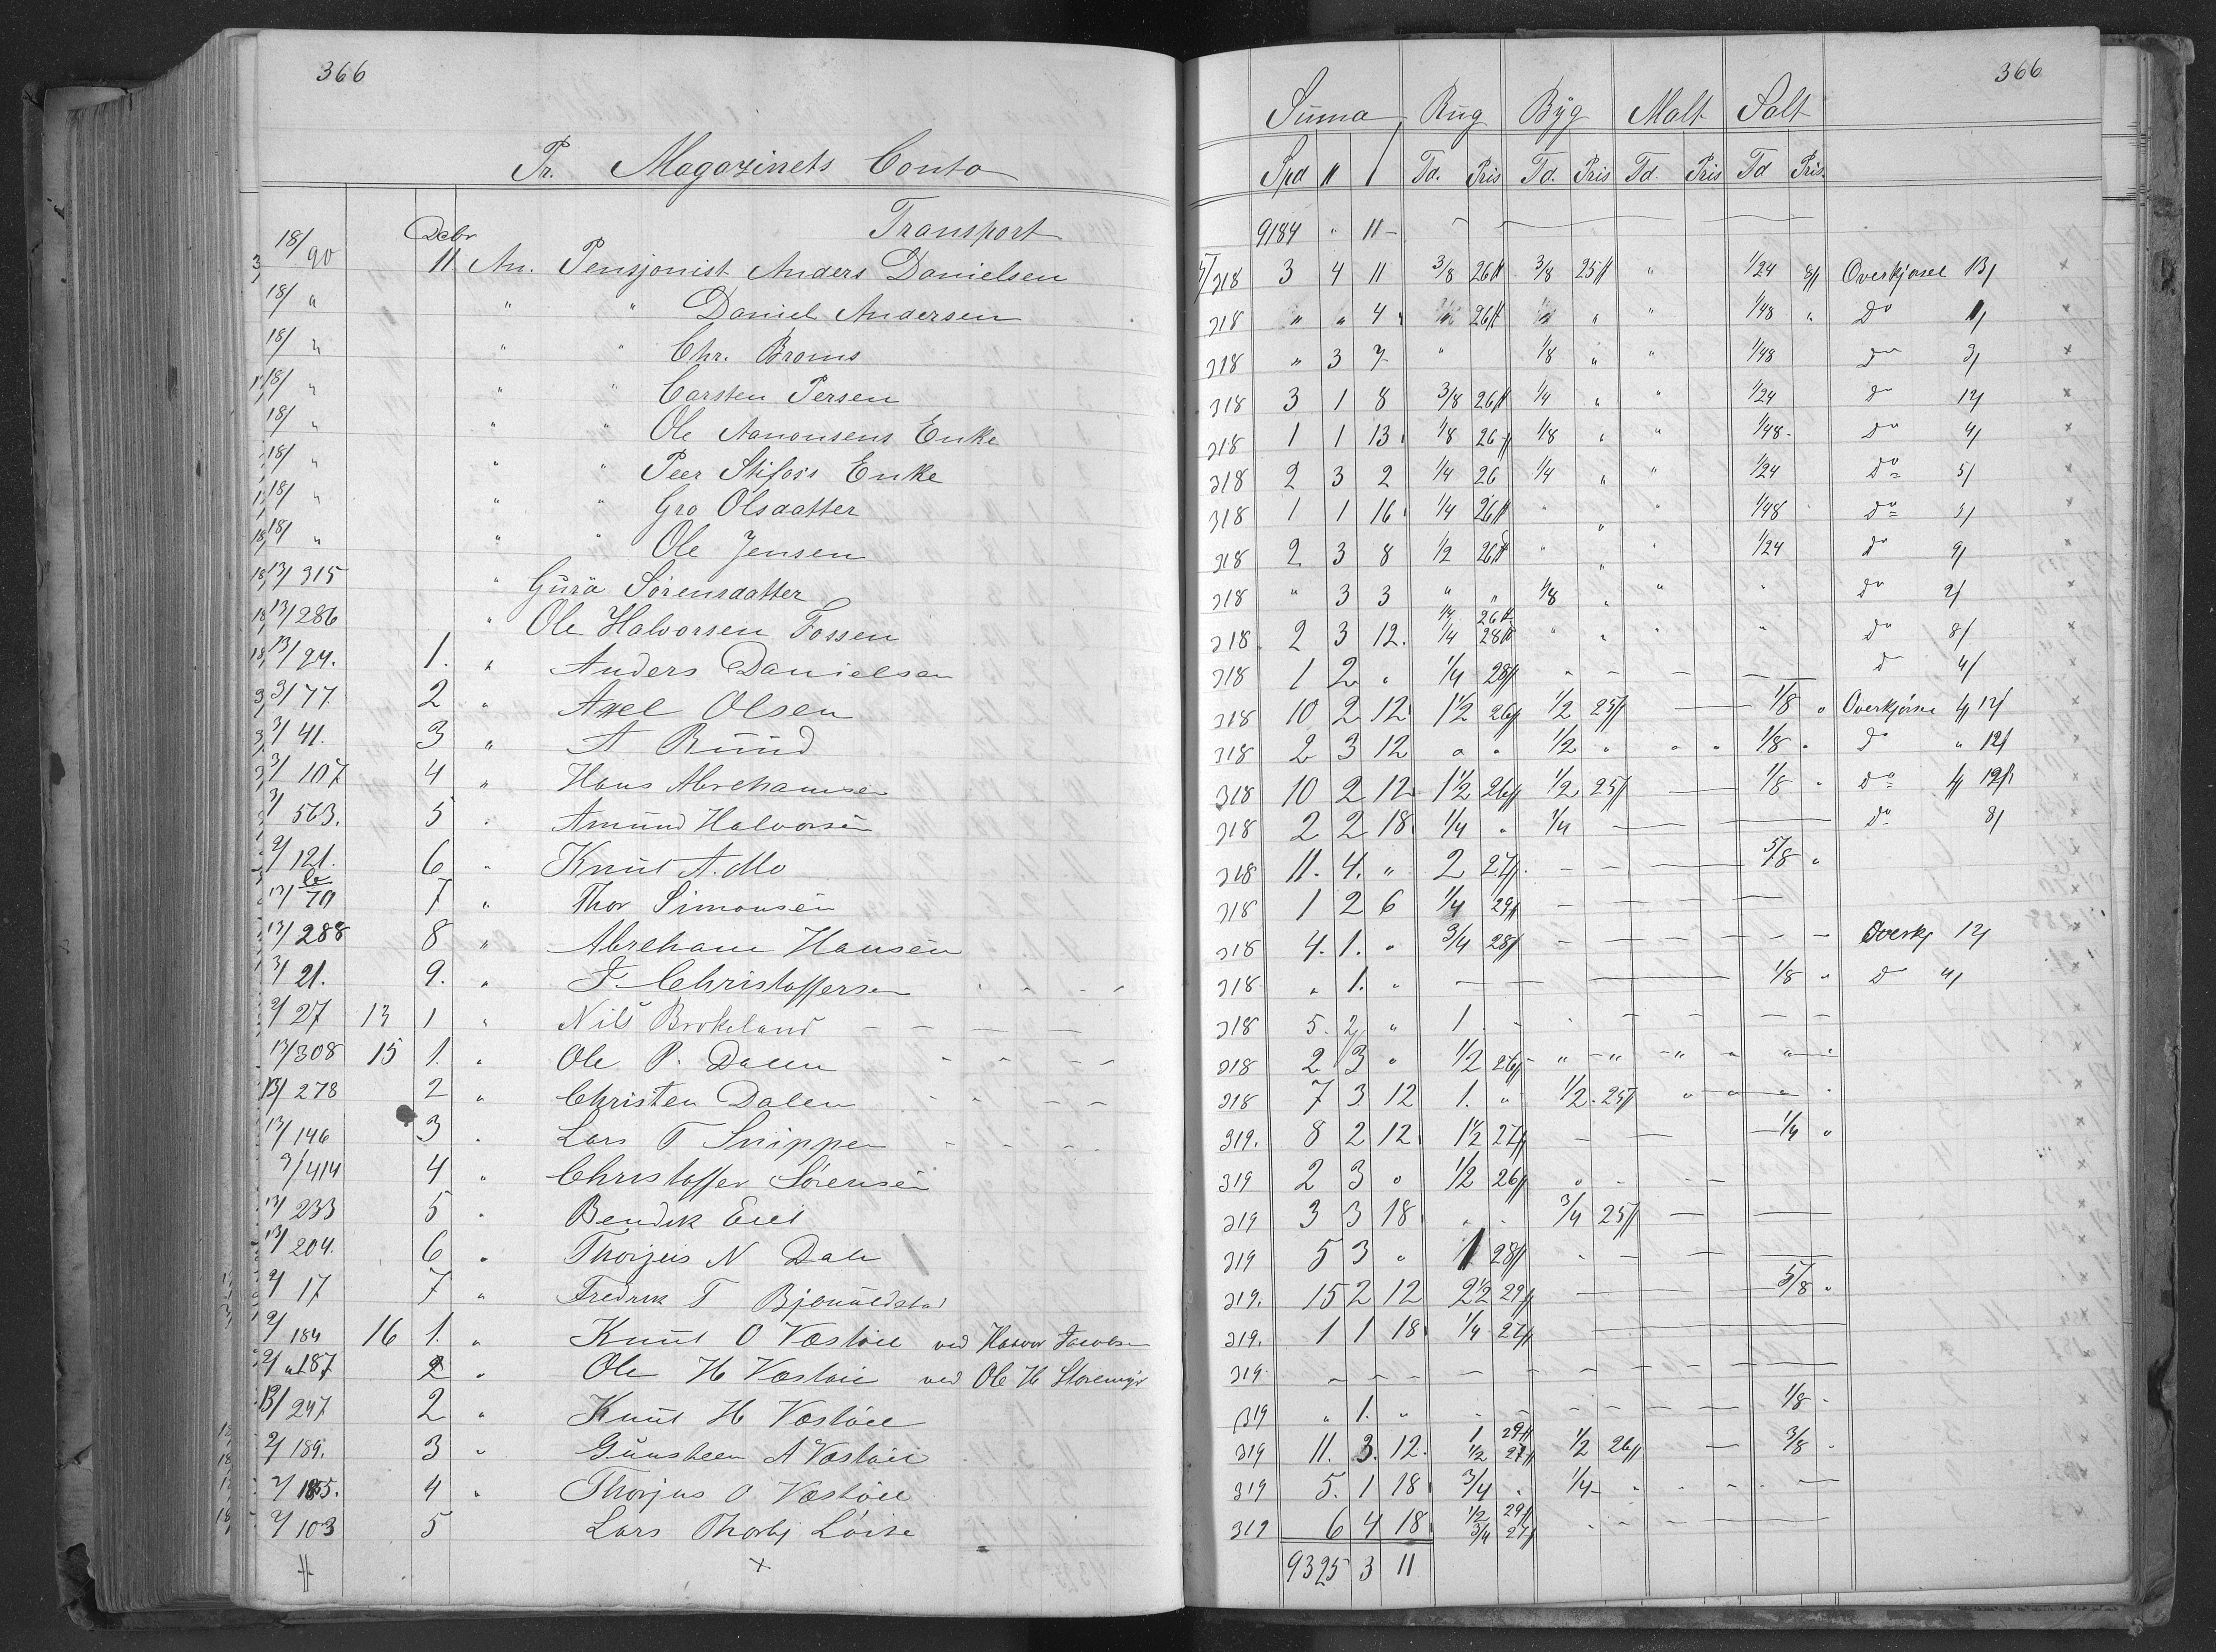 366
Pr. Magazinets Conto
Transport
18/90 Debr 11 An. Pensjonist Anders Danielsen
18/ " " " Daniel Andersen
18/ " " " Chr. Broms
18/ " " " Carsten Persen
18/ " " " Ole Aanonsens Enke
18/ " " " Peer Stifoss Enke
18/ " " " Gro Olsdatter
18/ " " " Ole Jensen
13/315 " Gurø Sørensdatter
13/286 " Ole Halvorsen Fossen
13/24. 1. " Anders Danielsen
3/77. 2 " Axel Olsen
3/41. 3 " A Ruud
3/107 4 " Hans Abrehamsen
3/563. 5 " Amund Halvorsen
2/121. 6 " Knut A. Mo
13/70 7 " Thor Simonsen
13/288 8 " Abreham Hansen
3/21. 9. " T. Christoffersen
2/27 13 1 " Nils Brokeland
13/308 15 1. " Ole P. Dalen
13/278 2 " Christen Dalen
13/146 3 " Lars T Snippen
3/414 4 " Christoffer Sørensen
13/233 5 " Bendik Eiet
13/204. 6 " Thorjus N Dale
2/17 7 " Fredrik T Bjonaldstad
2/184 16 1. " Knut O Vostøil ved Halvor Jacobsen
2/187 2 " Ole H Vostøil ved Ole H Storemyr
13/247 2 " Knut H Vostøil
2/189. 3 " Gunsteen A Vostøil
2/185. 4 " Thorjus O Vostøil
2/103 5 Lars Thorbj Løite
366
Suma Rug Byg Malt Salt
Spd Td. Pris Td. Pris Td. Pris Td Pris.
9184 " 11
318 3 4 11 3/8 26 3/8 25 " 1/24 8 Overkjørsel 13
318 " " 4 26 " " 1/48 " Do
318 " 3 7 " 1/8 " " 1/48 do 3
318 3 1 8 3/8 26 1/4 " " 1/24 do 12
318 1 1 13 1/8 26 1/8 " " 1/48 do 4
318 2 3 2 1/4 26 1/4 " " 1/24 do 5
318 1 1 16 1/4 26 " " " 1/48 do 5
318 2 3 8 1/2 26 " " " 1/24 do 9
318 " 3 3 " " 1/8 " " " do 2
318 2 3 12. 1/4 26 1/4 28 " " " " do 8
318 1 2 " 1/4 28 do 4
318 10 2 12 1 1/2 26 1/2 25 1/8 " Overkjørsel 4 12
318 2 3 12 " " 1/2 " " " 1/8 " do " 12
318 10 2 12 1 1/2 26 1/2 25 1/8 " do 4 12
318 2 2 18 1/4 " 1/4 do 8
318 11. 4. " 2 27 5/8 "
318 1 2 6 1/4 29
318 4. 1. " 3/4 28 Overkj 12
318 " 1. " 1/8 " do 4
318 5. 2 " 1
318 2 3 " 1/2 26
318 7 3 12 1. " 1/2 25
319. 8 2 12 1 1/2 27 1/4 "
319 2 3 " 1/2 26
319 3 3 18 " " 3/4 25
319 5 3 " 1 28
319. 15 2 12 2 1/2 29 5/8 "
319. 1 1 18 1/4 27
319
319 " 1. " 1/8
319 11. 3. 12. 1 29 1/2 27 1/2 26 3/8
319 5. 1 18 3/4 " 1/4
319 6 4 18 1/2 29 3/4 27
9325 3 11